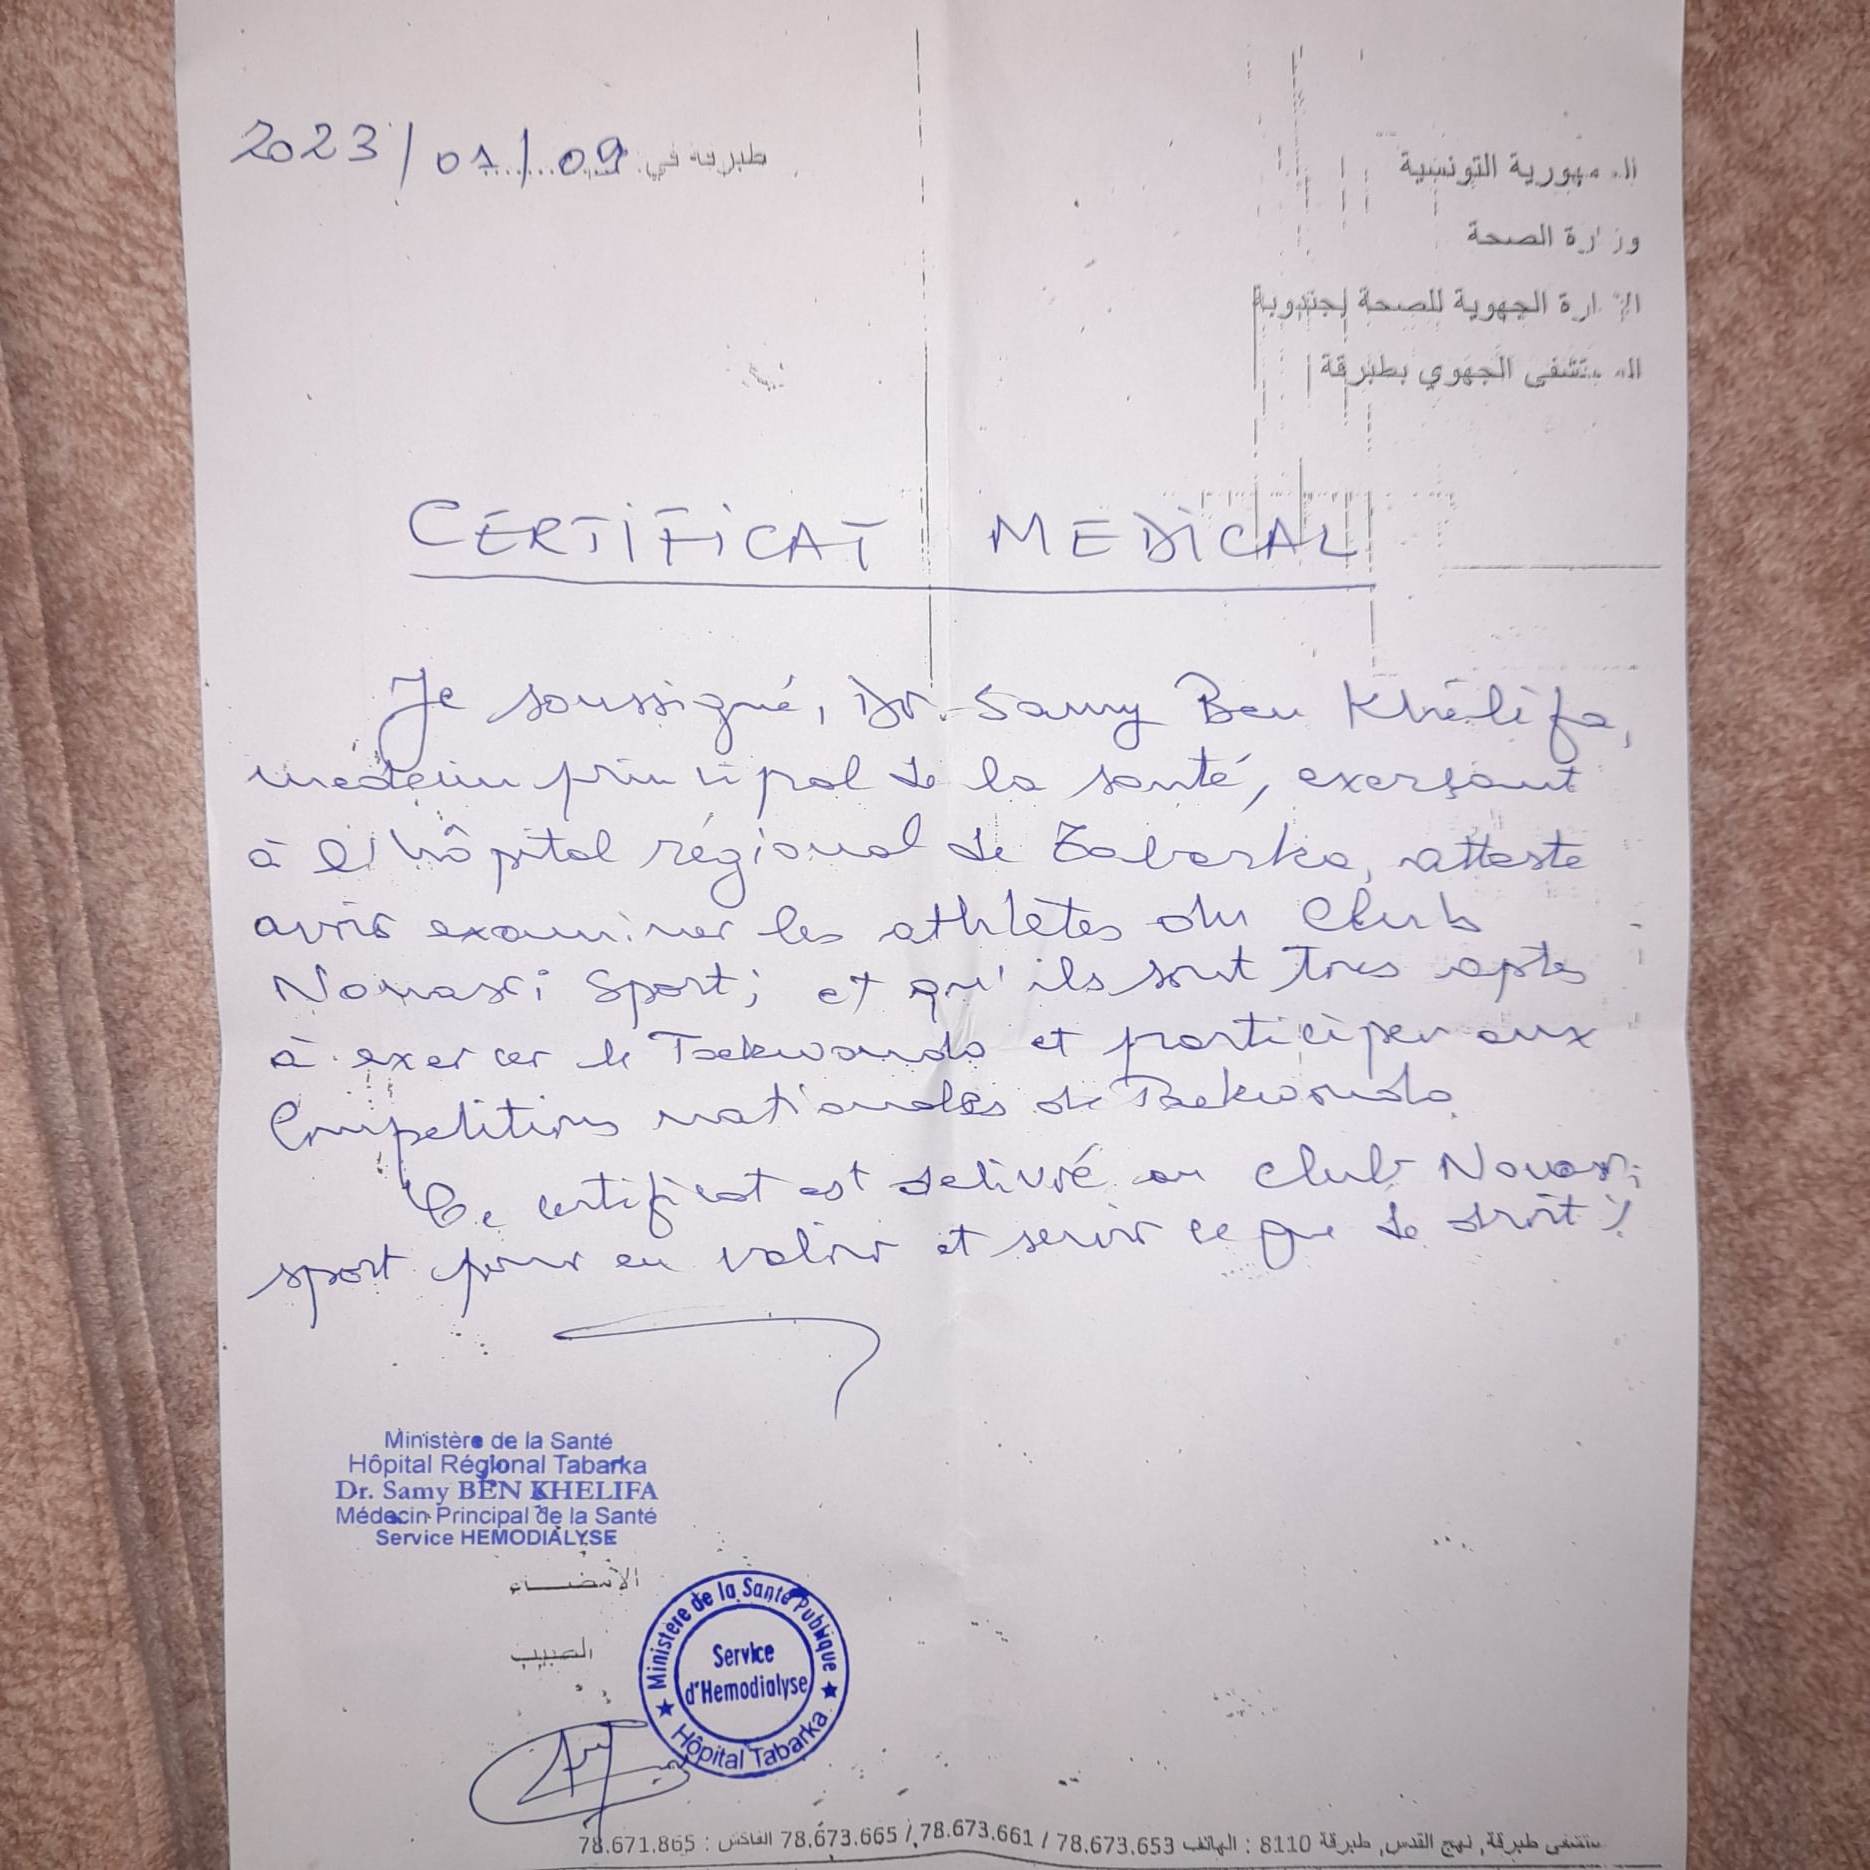 الجمهورية التونسية
وزارة الصحة
الإدارة الجهوية للصحة بجندوبة
المستشفى الجهوي بطبرقة
طبرقة في 09/01/2023
CERTIFICAT MEDICAL
Je soussigné, Dr. Samy Ben Khélifa,
medecin principal de la santé, exerçant
à l'hôpital régional de Tabarka, atteste
avoir examiner les athlètes du Club
Nouasri Sport; et qu'ils sont tres aptes
à exercer le Taekwondo et participer aux
Compétitions nationales de Taekwondo.
Ce certificat est délivré au club Nouasri
sport pour en valoir et servir ce que de droit
Ministère de la Santé
Hôpital Régional Tabarka
Dr. Samy BEN KHELIFA
Médecin Principal de la Santé
Service HEMODIALYSE
الإمضاء
الطبيب
Ministère de la Santé Publique
Service
d'Hemodialyse
Hôpital Tabarka
مستشفى طبرقة, نهج القدس, طبرقة 8110 : الهاتف 78.673.653 / 78.673.661 / 78.673.665 الفاكس : 78.671.865